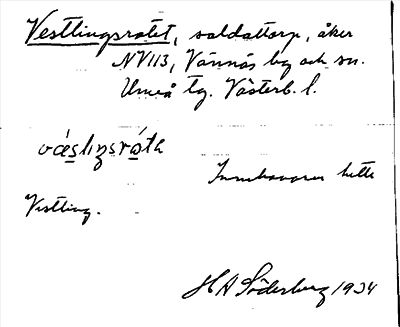 Vestlingsrotet, soldattorp, åker
NV113, Vännäs by och sn.
Umeå tg. Västerb. l.
Innehavaren hette
Vestling.
H A Söderberg 1934